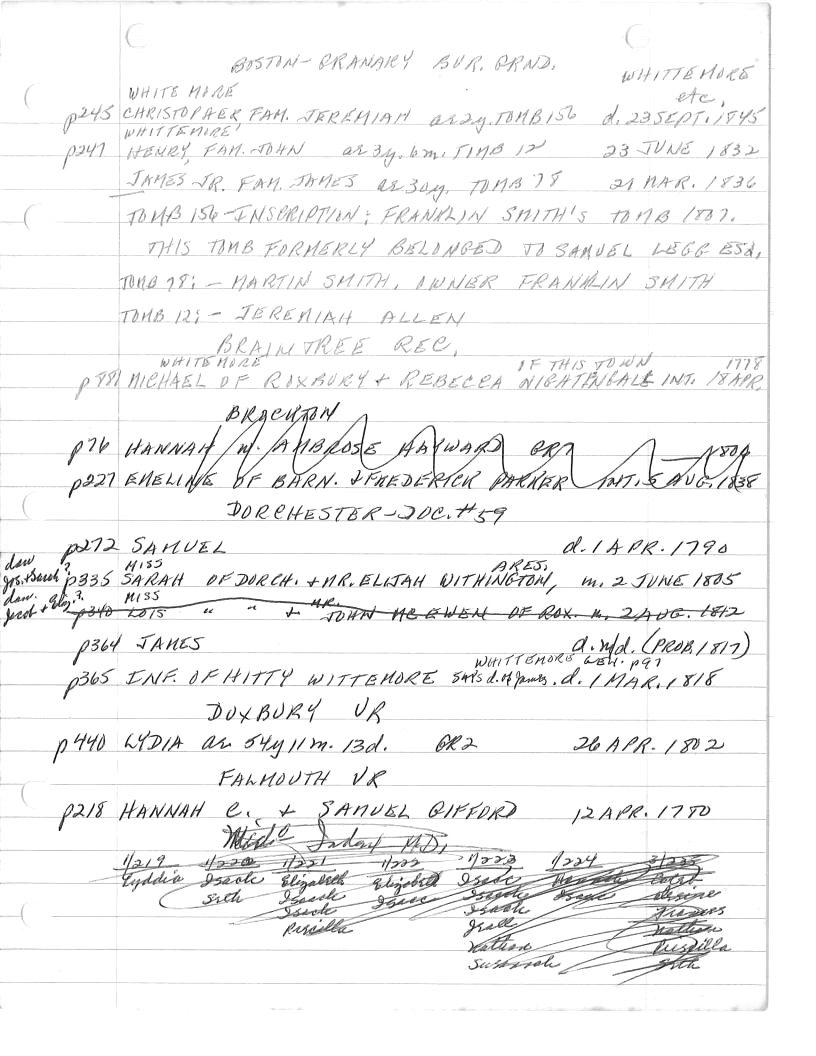 BOSTON - GRANARY BUR. GRND.
WHITTEMORE
etc.
WHITEMORE
p245 CHRISTOPHER FAM. JEREMIAH ae 2y. TOMB 156 d. 23 SEPT. 1845
WHITTEMORE
p247 HENRY, FAM. JOHN ae 3y. 6m. TOMB 12 23 JUNE 1832
JAMES JR. FAM. JAMES ae 30y. TOMB 78 21 MAR. 1836
TOMB 156 - INSCRIPTION: FRANKLIN SMITH'S TOMB 1807.
THIS TOMB FORMERLY BELONGED TO SAMUEL LEGG ESQ.
TOMB 78: - MARTIN SMITH, OWNER FRANKLIN SMITH
TOMB 12: - JEREMIAH ALLEN
BRAINTREE REC.
WHITEMORE OF THIS TOWN 1778
MICHAEL OF ROXBURY + REBECCA NIGHTENGALE INT. 18 APR.
BROCKTON
p76 HANNAH m. AMBROSE HAYWARD GR7 1804
p227 EMELINE OF BARN. + FREDERICK PARKER INT. 5 AUG. 1838
DORCHESTER - DOC. #59
p272 SAMUEL d. 1 APR. 1790
daw Jos. + Sarah?
MISS
p335 SARAH OF DORCH. + MR. ELIJAH WITHINGTON, m. 2 JUNE 1805
daw. Jacob + Eliz.?
MISS MR.
p340 LOIS " " + JOHN MC EWEN OF ROX. m. 2 AUG. 1812
p364 JAMES d. n/d. (PROB. 1817)
WHITTEMORE GEN. p97
p365 INF. OF HITTY WITTEMORE says d. of James. d. 1 MAR. 1818
DUXBURY VR
p440 LYDIA ae 54y 11m. 13d. GR2 26 APR. 1802
FALMOUTH VR
p218 HANNAH C. + SAMUEL GIFFORD 12 APR. 1780
1/219 1/220 1/221 1/222 1/223 1/224
Lyddia Isaac Elizabeth Elizabeth Isaac
Seth Isaac Isaac
Isaac Isaac
Priscilla
Nathan Priscilla
Susannah Seth